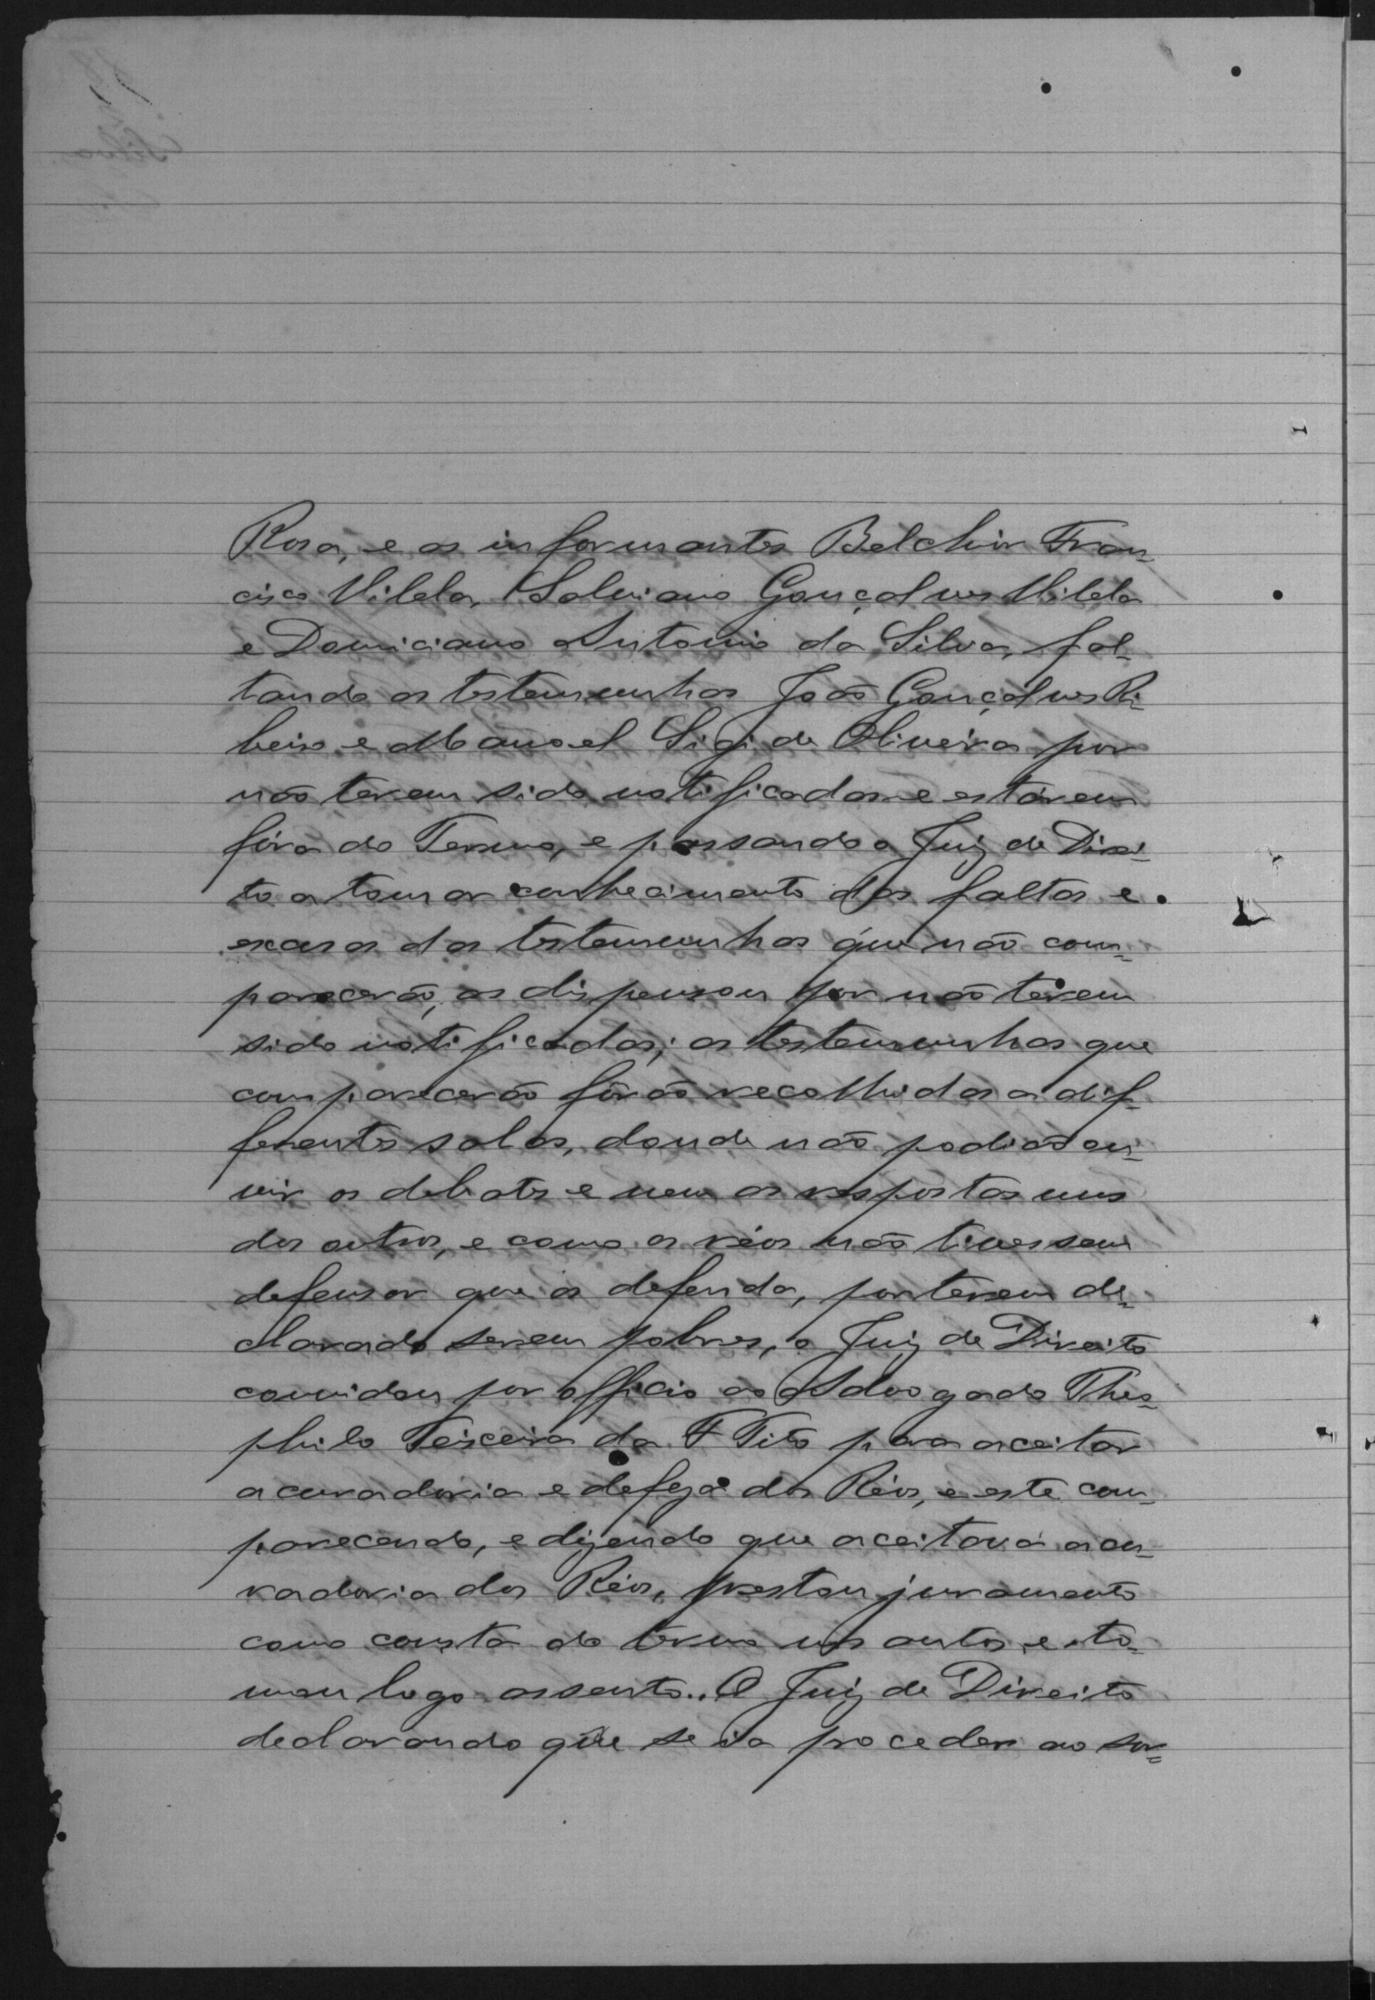 Rosa, e os informantes Belchior Fran-
cisco Vilela, Salviano Gonçalves Vilela
e Domiciano Antonio da Silva, fal-
tando as testemunhas João Gonçalves Ri-
beiro e Manoel de Oliveira por
não terem sido notificadas e estarem
fóra do Termo, e passando o Juiz de Direi-
to a tomar conhecimento das faltas e
escusas das testemunhas que não com-
parecerão, as dispensou por não terem
sido notificadas; as testemunhas que
comparecerão fôrão recolhidas a dif-
ferentes salas, donde não podião ou-
vir os debates e nem as respostas uns
dos outros, e como os réos não tivessem
defensor que os defenda, por terem de-
clarado serem pobres, o Juiz de Direito
convidou por officio ao Advogado Theo-
philo Teixeira da F Tito para aceitar
a curadoria e defeza dos Réos, e este com-
parecendo, e dizendo que aceitava a cu-
radoria dos Réos, prestou juramento
como consta do termo nos autos, e to-
mou logo assento.. O Juiz de Direito
declarando que se ia proceder ao sor-